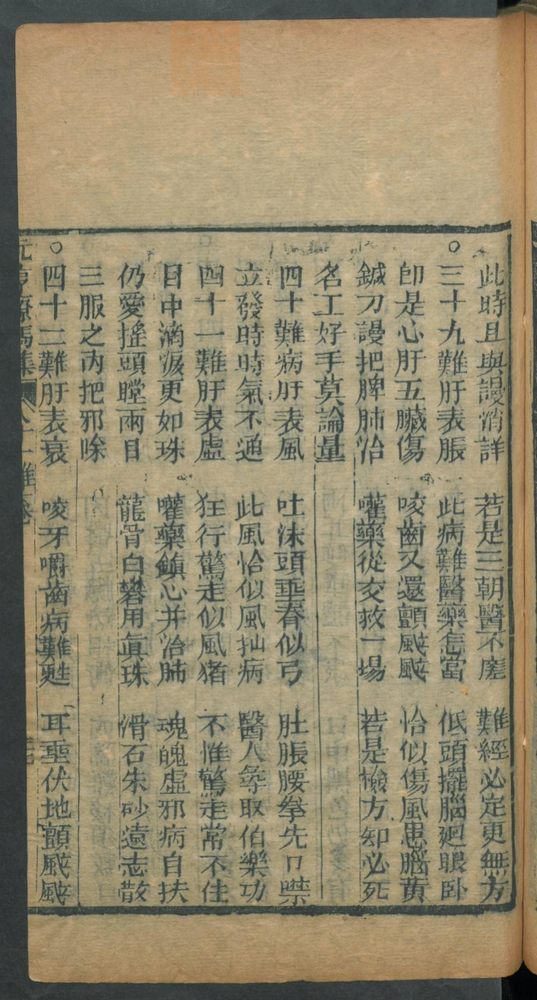 此時且與謾消詳　若是三朝醫不瘥　難經必定更無方
○三十九難肝表脹　此病難醫藥怎當　低頭擺腦廻眼卧
即是心肝五臟傷　咬齒又還顫颭颭　恰似傷風患腦黃
鍼刀謾把脾肺治　嚾藥從交救一場　若是檢方知必死
名工好手莫論量
四十難病肝表風　吐沫頭垂脊似弓　肚脹腰拳先口噤
立發時時氣不通　此風恰似風拙病　醫人等取伯樂功
四十一難肝表虛　狂行驚走似風猪　不惟驚走常不住
目中滴淚更如珠　嚾藥鎮心并治肺　魂魄虛邪病自扶
仍愛搖頭瞠兩目　龍骨白礬用眞珠　滑石朱砂遠志散
三服之內把邪除
○四十二難肝表衰　咬牙嚼齒病難甦　耳垂伏地顫颭颭
元亨療馬集